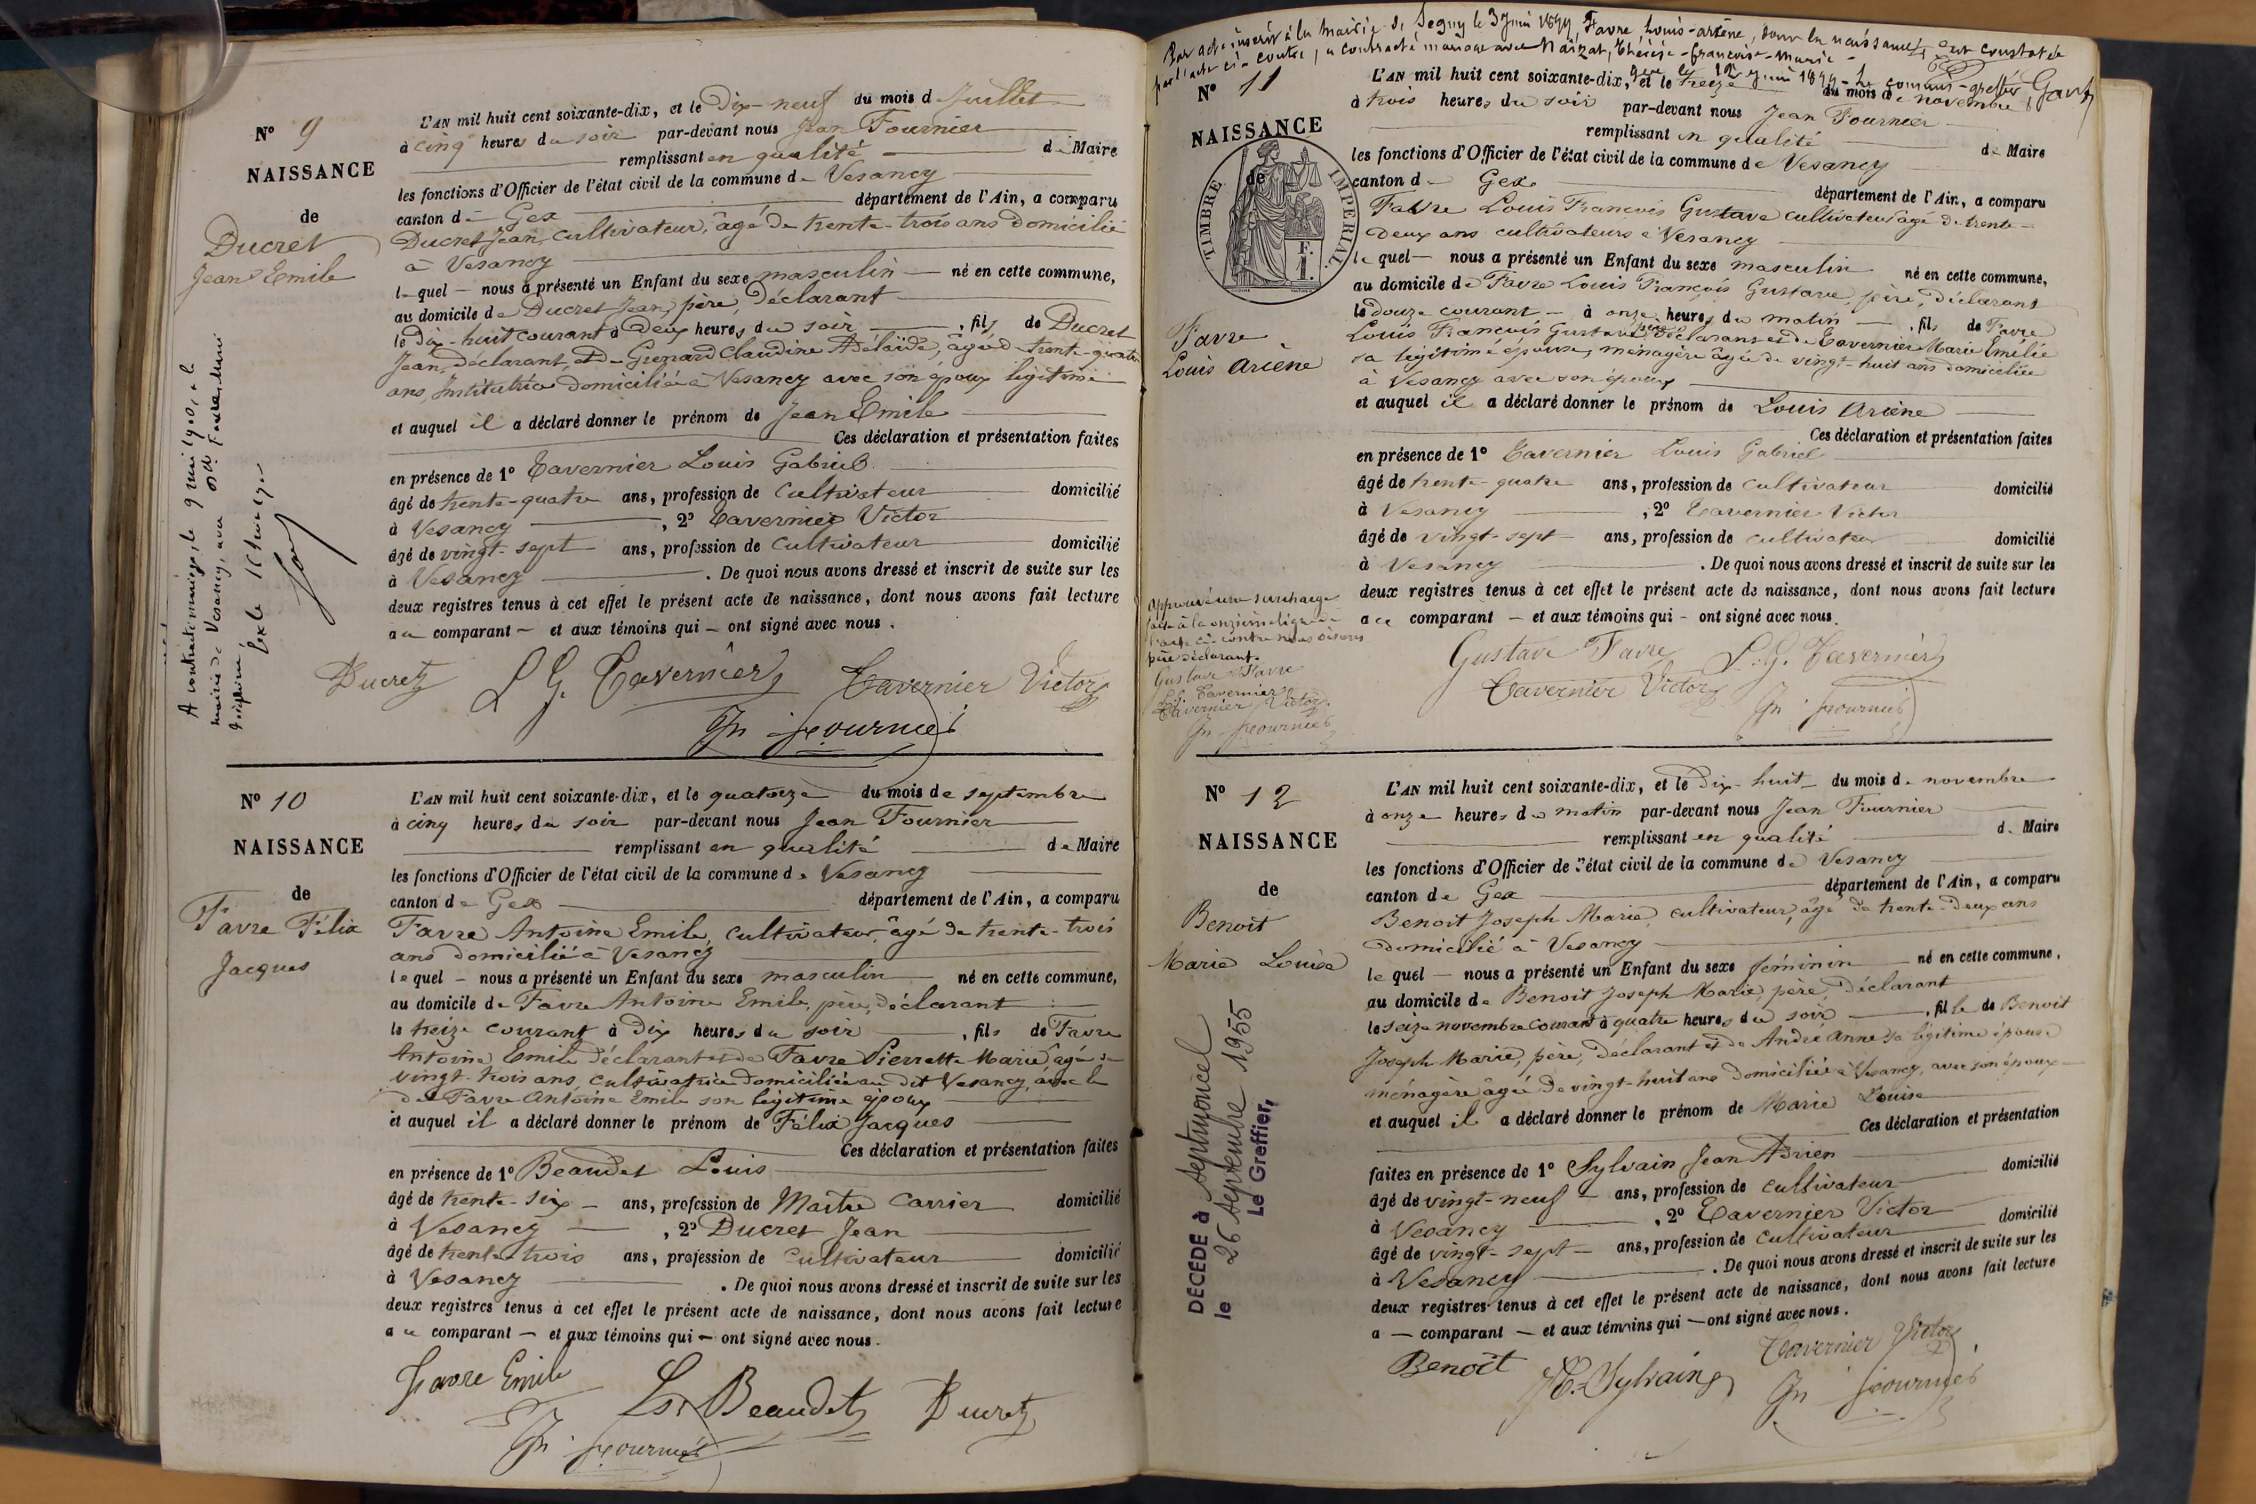 N° 9
NAISSANCE
de
Ducret
Jean Emile
L'AN mil huit cent soixante-dix, et le Dix-neuf du mois de Juillet
à cinq heures du soir par-devant nous Jean Fournier
remplissant en qualité de Maire
les fonctions d'Officier de l'état civil de la commune de Vesancy
canton de Gex département de l'Ain, a comparu
Ducret Jean, cultivateur, âgé de trente-trois ans domicilié
à Vesancy
lequel nous a présenté un Enfant du sexe masculin né en cette commune,
au domicile de Ducret Jean, père, déclarant
le Dix-huit courant à Deux heures du soir, fils de Ducret
Jean, déclarant, et de Grenard Claudine Adélaïde, âgée de trente-quatre
ans, Institutrice domiciliée à Vesancy avec son époux légitime
et auquel il a déclaré donner le prénom de Jean Emile
Ces déclaration et présentation faites
en présence de 1° Tavernier Louis Gabriel
âgé de trente-quatre ans, profession de Cultivateur domicilié
à Vesancy, 2° Tavernier Victor
âgé de vingt-sept ans, profession de Cultivateur domicilié
à Vesancy. De quoi nous avons dressé et inscrit de suite sur les
deux registres tenus à cet effet le présent acte de naissance, dont nous avons fait lecture
au comparant et aux témoins qui ont signé avec nous.
Ducret L G. Tavernier Tavernier Victor
Jn Fournier
A contracté mariage, le 9 mai 190
mairie de Vesancy, avec Favre Marie
Joséphine
Gex le
N° 10
NAISSANCE
de
Favre Félix
Jacques
L'AN mil huit cent soixante-dix, et le quatorze du mois de septembre
à cinq heures du soir par-devant nous Jean Fournier
remplissant en qualité de Maire
les fonctions d'Officier de l'état civil de la commune de Vesancy
canton de Gex département de l'Ain, a comparu
Favre Antoine Emile, cultivateur, âgé de trente-trois
ans domicilié à Vesancy
lequel nous a présenté un Enfant du sexe masculin né en cette commune,
au domicile de Favre Antoine Emile, père, déclarant
le treize courant à Dix heures du soir, fils de Favre
Antoine Emile déclarant et de Favre Pierrette Marie âgée de
vingt-trois ans, cultivatrice domiciliée au dit Vesancy, avec le
dit Favre Antoine Emile son légitime époux
et auquel il a déclaré donner le prénom de Félix Jacques
Ces déclaration et présentation faites
en présence de 1° Beaudet Louis
âgé de trente-six ans, profession de Maître Carrier domicilié
à Vesancy, 2° Ducret Jean
âgé de trente-trois ans, profession de Cultivateur domicilié
à Vesancy. De quoi nous avons dressé et inscrit de suite sur les
deux registres tenus à cet effet le présent acte de naissance, dont nous avons fait lecture
au comparant et aux témoins qui ont signé avec nous.
Favre Emile Ls Beaudet Ducret
Jn Fournier
Par acte inscrit à la mairie de Segny le 3 Juin 1899, Favre, Louis-arsène, dont la naissance est constatée
par l'acte ci-contre, a contracté mariage avec Maizat, Thérèse-françoise-marie
Gex le 12 juin 1899 - Le commis-greffier
N° 11
NAISSANCE
de
TIMBRE IMPERIAL
F.
1.
Favre
Louis Arcène
L'AN mil huit cent soixante-dix, et le treize du mois de novembre
à trois heures du soir par-devant nous Jean Fournier
remplissant en qualité de Maire
les fonctions d'Officier de l'état civil de la commune de Vesancy
canton de Gex département de l'Ain, a comparu
Favre Louis François Gustave cultivateur âgé de trente-
deux ans cultivateurs à Vesancy
lequel nous a présenté un Enfant du sexe masculin né en cette commune,
au domicile de Favre Louis François Gustave, père, déclarant
le douze courant à onze heures du matin, fils de Favre
Louis François Gustave père déclarant et de Tavernier Marie Emélie
sa légitime épouse, ménagère âgée de vingt-huit ans domiciliée
à Vesancy avec son époux
et auquel il a déclaré donner le prénom de Louis Arcène
Ces déclaration et présentation faites
en présence de 1° Tavernier Louis Gabriel
âgé de trente-quatre ans, profession de cultivateur domicilié
à Vesancy, 2° Tavernier Victor
âgé de vingt-sept ans, profession de cultivateur domicilié
à Vesancy. De quoi nous avons dressé et inscrit de suite sur les
deux registres tenus à cet effet le présent acte de naissance, dont nous avons fait lecture
au comparant et aux témoins qui ont signé avec nous.
Gustave Favre L. G. Tavernier
Tavernier Victor Jn Fournier
Approuvé une surcharge
faite à la onzième ligne de
l'acte ci-contre nous disons
père déclarant.
Gustave Favre
L G Tavernier
Tavernier Victor
Jn Fournier
N° 12
NAISSANCE
de
Benoit
Marie Louise
L'AN mil huit cent soixante-dix, et le Dix-huit du mois de novembre
à onze heures du matin par-devant nous Jean Fournier
remplissant en qualité de Maire
les fonctions d'Officier de l'état civil de la commune de Vesancy
canton de Gex département de l'Ain, a comparu
Benoit Joseph Marie, cultivateur, âgé de trente-deux ans
domicilié à Vesancy
lequel nous a présenté un Enfant du sexe féminin né en cette commune,
au domicile de Benoit Joseph Marie, père, déclarant
le seize novembre courant à quatre heures du soir, fille de Benoit
Joseph Marie, père, déclarant et de André Anne sa légitime épouse
ménagère âgée de vingt-huit ans domiciliée à Vesancy, avec son époux
et auquel il a déclaré donner le prénom de Marie Louise
Ces déclaration et présentation
faites en présence de 1° Sylvain Jean Adrien
âgé de vingt-neuf ans, profession de cultivateur domicilié
à Vesancy, 2° Tavernier Victor
âgé de vingt-sept ans, profession de cultivateur domicilié
à Vesancy. De quoi nous avons dressé et inscrit de suite sur les
deux registres tenus à cet effet le présent acte de naissance, dont nous avons fait lecture
a comparant et aux témoins qui ont signé avec nous.
Benoit A. Sylvain Tavernier Victor
Jn Fournier
DECEDE à Septmoncel
le 26 Septembre 1955
Le Greffier,